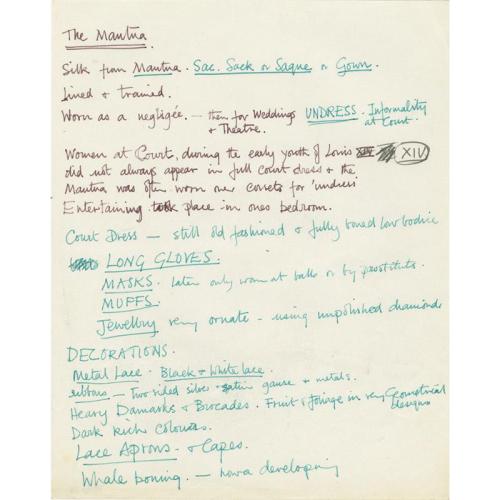 The Mantua.
Silk from Mantua. Sac. Sack or Saque or Gown.
Lined & trained.
Worn as a negligée. — then for Weddings & Theatre. UNDRESS. Informality at Court.
Women at Court, during the early youth of Louis XIV
did not always appear in full court dress & the
Mantua was often worn over corsets for 'undress'
Entertaining took place in ones bedroom.
Court Dress — still old fashioned & fully boned low bodice
LONG GLOVES.
MASKS. Later only worn at balls or by prostitutes.
MUFFS.
Jewellery very ornate - using unpolished diamonds
DECORATIONS.
Metal Lace. Black & White lace.
ribbons — Two sided silver & satin gauze & metals.
Heavy Damasks & Brocades. Fruit & foliage in very Geometrical designs
Dark rich colours.
Lace Aprons - & Capes.
Whale boning. — now a developing